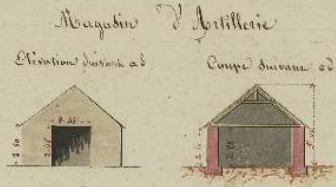 Magasin d'Artillerie
Elévation suivant ab
Coupe suivant cd